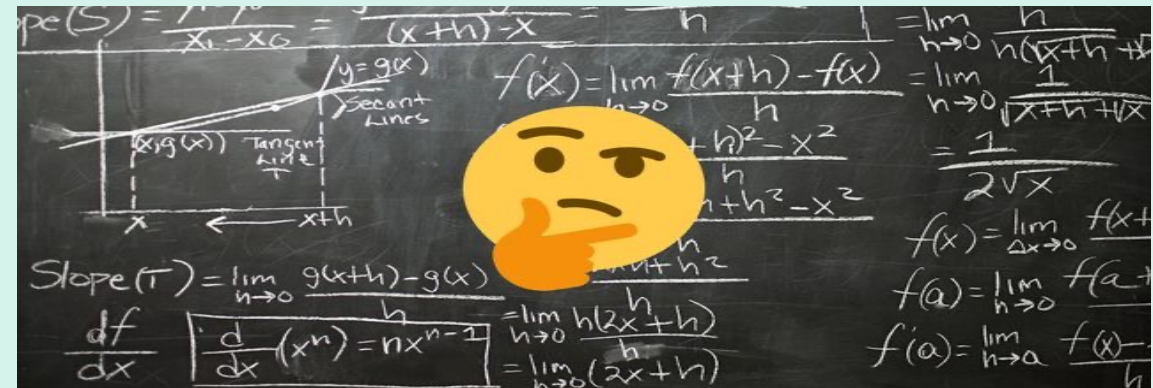 pe(S) =
X₁-X₀
=
(x+h)-X
=
h
y=g(x)
Secant
Lines
(x,g(x))
Tangent
Line
T
x
←
x+h
Slope(T) = lim h→0 g(x+h)-g(x)
h
df
dx
d
dx
(xⁿ) = nxⁿ⁻¹
f'(x) = lim h→0 f(x+h)-f(x)
h
h)²-x²
h
h+h²-x²
h
h+h²
h
= lim h→0 h(2x+h)
h
= lim h→0 (2x+h)
= lim h→0 h
h(√x+h+√
= lim h→0 1
√x+h+√x
= 1
2√x
f(x) = lim Δx→0 f(x+
f(a) = lim h→0 f(a+
f'(a) = lim h→a f(x)-
h